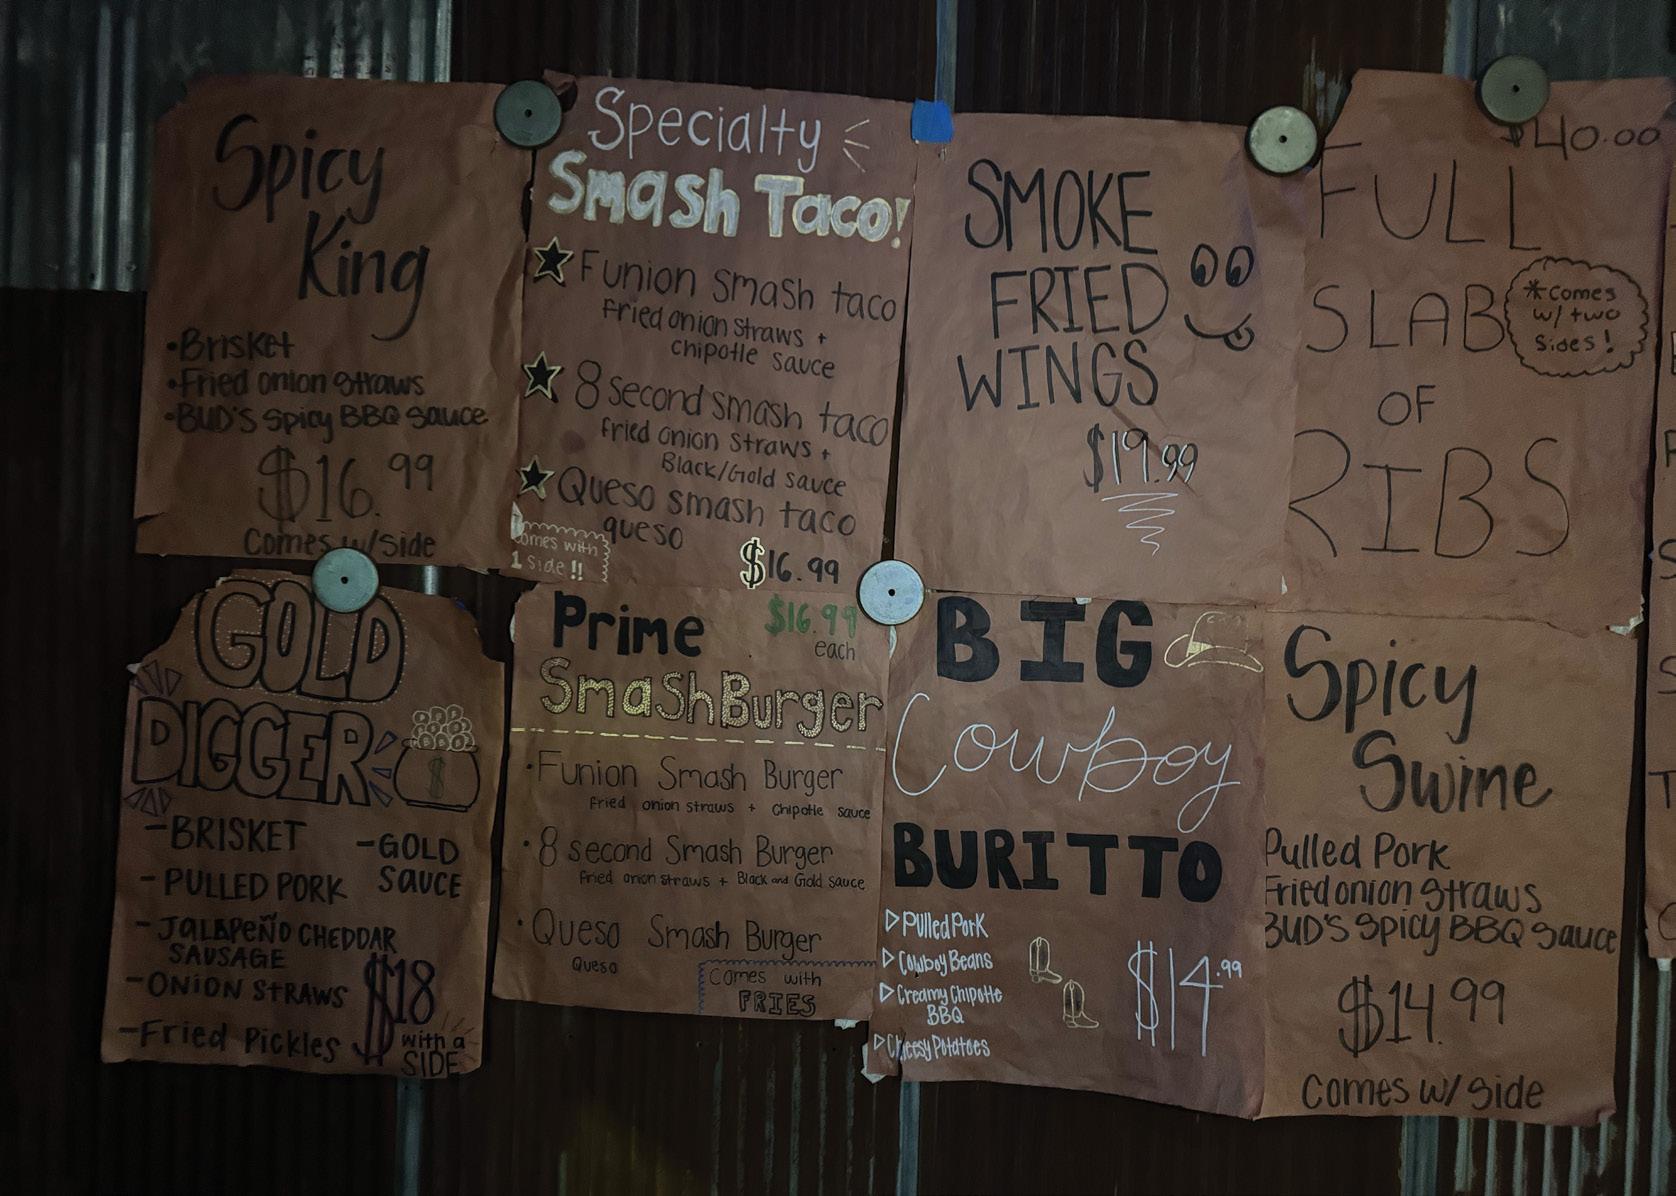 Spicy
King
•Brisket
•Fried onion straws
•BUD'S Spicy BBQ Sauce
$16.99
Comes w/side
Specialty
Smash Taco!
Funion smash taco
fried onion straws +
chipotle sauce
8 second smash taco
fried onion straws +
Black/Gold sauce
Queso smash taco
queso
Comes with
1 side !!
$16.99
SMOKE
FRIED
WINGS
$19.99
$40.00
FULL
SLAB
*Comes
w/ two
Sides!
OF
RIBS
GOLD
DIGGER
$
-BRISKET
-GOLD
SAUCE
-PULLED PORK
-JALAPEÑO CHEDDAR
SAUSAGE
-ONION STRAWS
-Fried Pickles
$18
with a
SIDE
Prime
$16.99
each
SmashBurger
•Funion Smash Burger
fried onion straws + Chipotle sauce
•8 second Smash Burger
fried onion straws + Black and Gold sauce
•Queso Smash Burger
Queso
Comes with
FRIES
BIG
Cowboy
BURITTO
Pulled Pork
Cowboy Beans
Creamy Chipotle
BBQ
Cheesy Potatoes
$14.99
Spicy
Swine
Pulled Pork
Fried onion straws
BUD'S Spicy BBQ Sauce
$14.99
Comes w/ Side